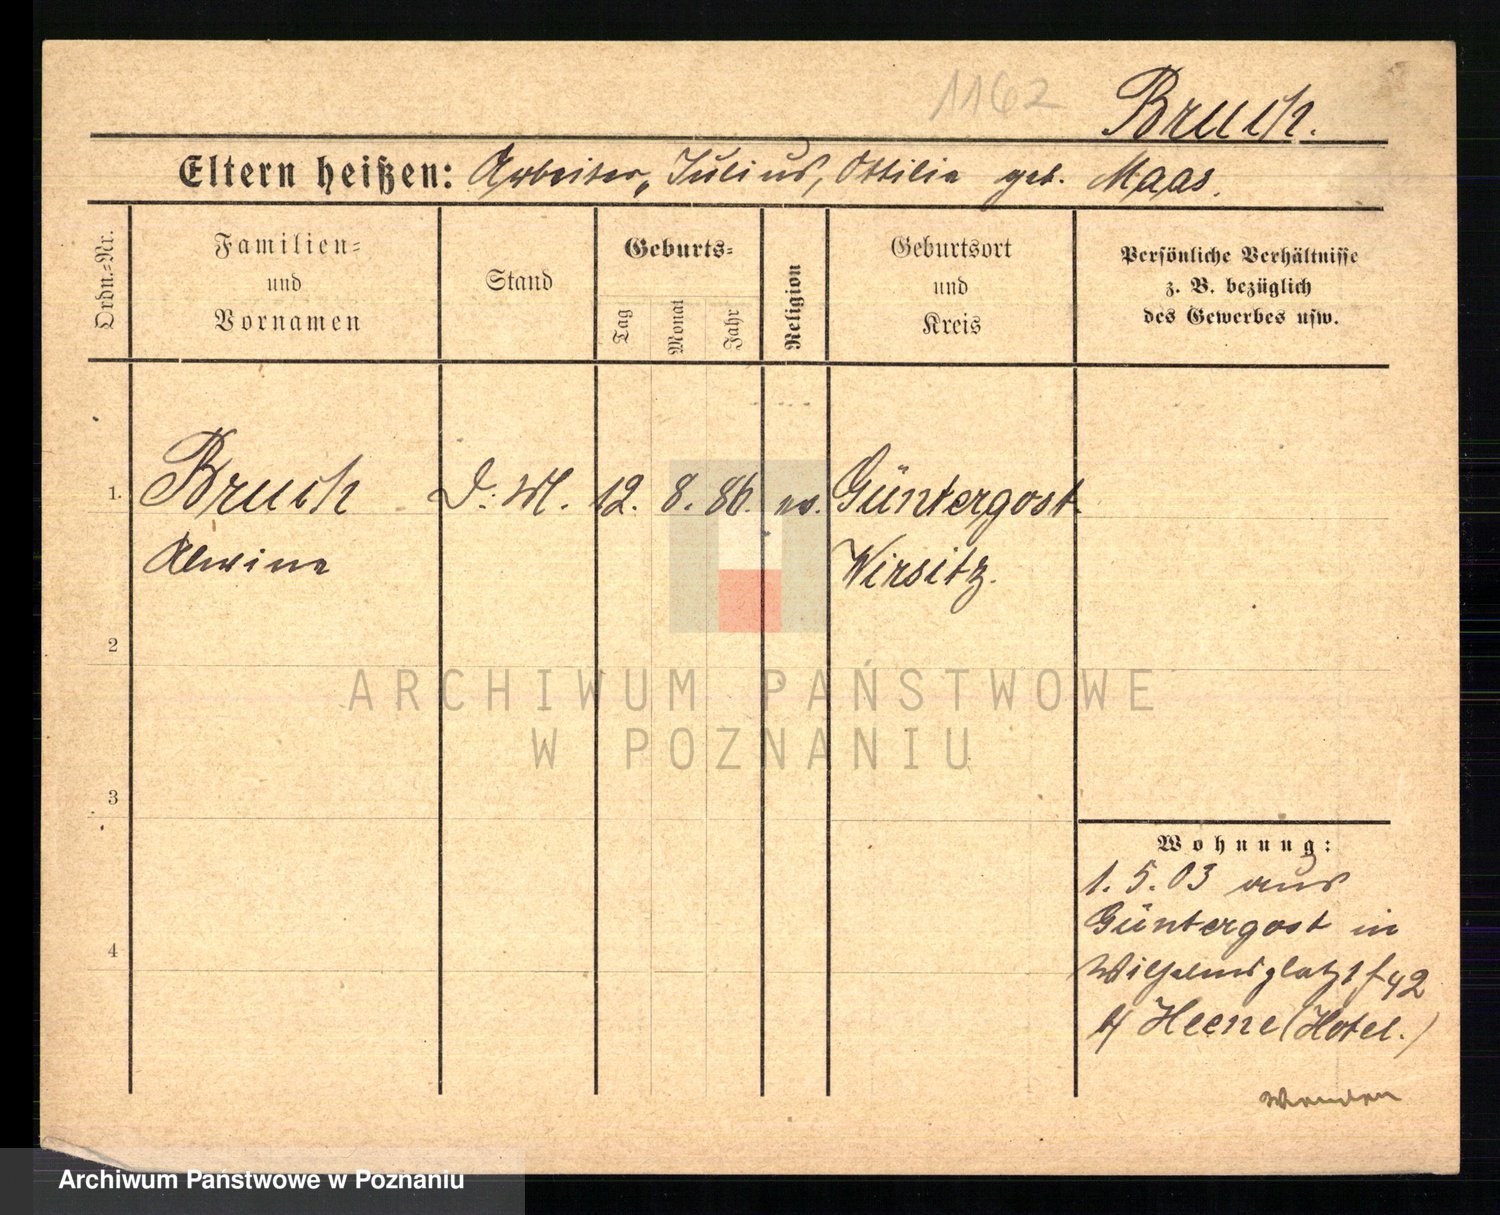 1162
Bruch.
Eltern heißen: Arbeiter, Julius, Ottilie geb. Maas.
Ordn.=Nr.
Familien=
und
Vornamen
Stand
Geburts=
Tag
Monat
Jahr
Religion
Geburtsort
und
Kreis
Persönliche Verhältnisse
z. B. bezüglich
des Gewerbes usw.
1.
Bruch
D. M.
12. 8. 86. ev.
Güntergost
Alwine
Wirsitz.
2
3
4
Wohnung:
1. 5. 03 aus
Güntergost in
Wilhelmsplatz 1
b/ Heene (Hotel.)
Wenden
ARCHIWUM PAŃSTWOWE
W POZNANIU
Archiwum Państwowe w Poznaniu